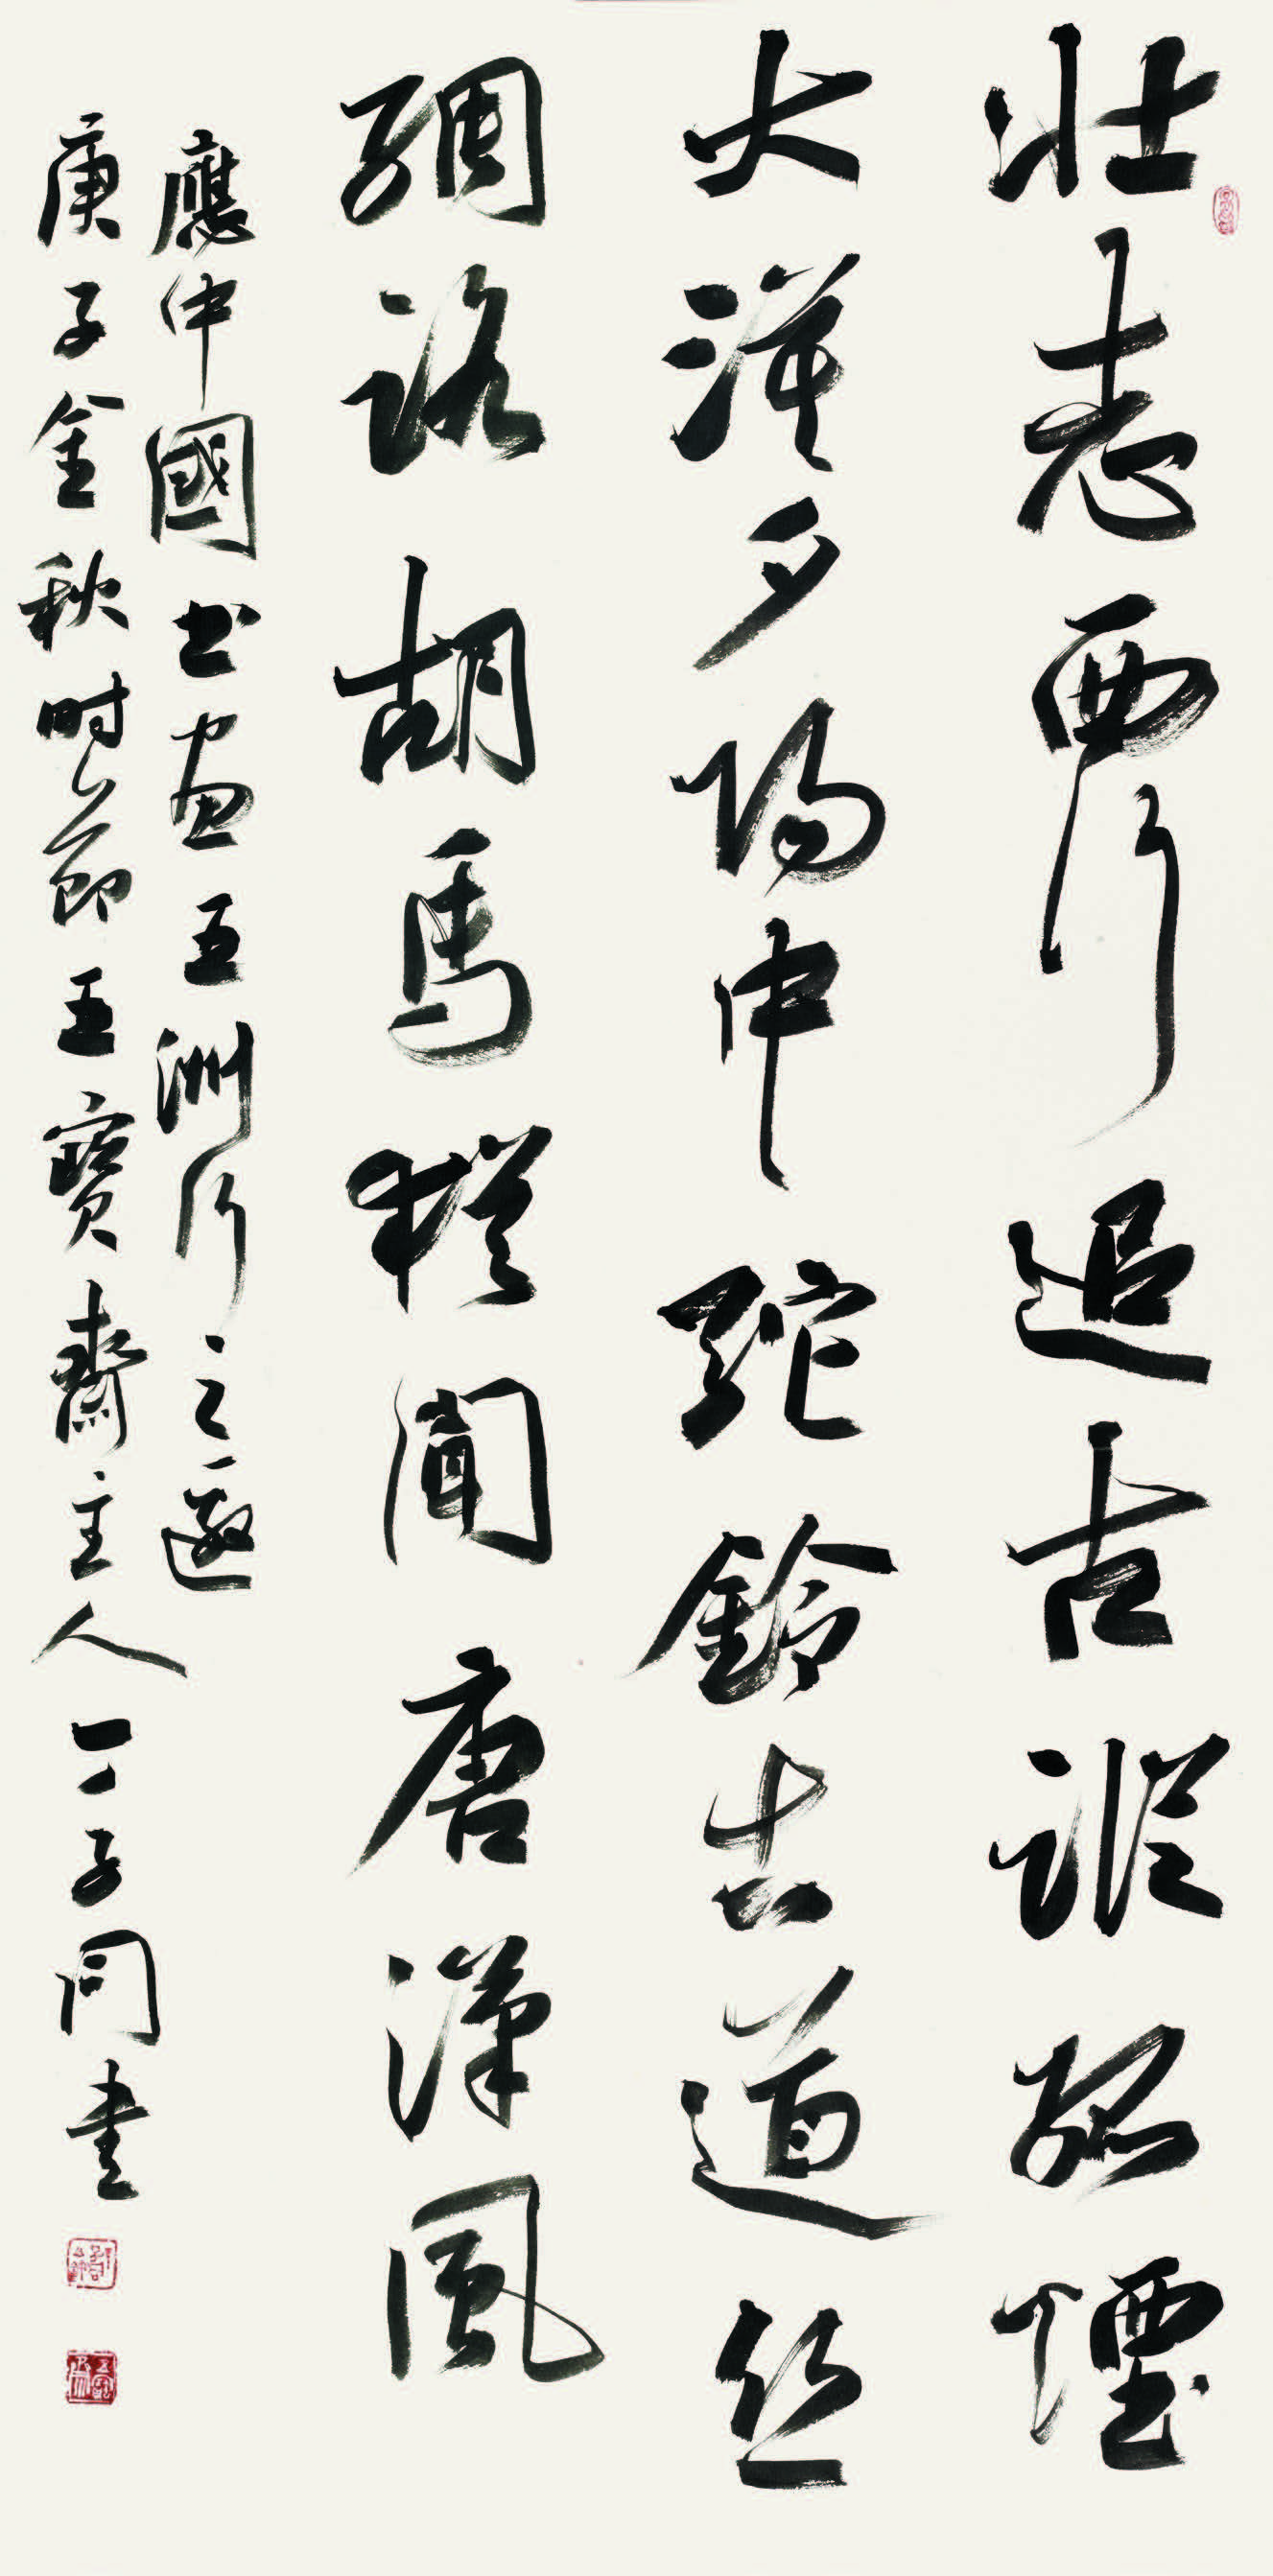 壯志西行追古踪孤煙
大漠夕陽中駝鈴古道丝
綢路胡馬猶聞唐漢風
應中國书画五洲行之邀
庚子金秋时節五寶齋主人丁子同書